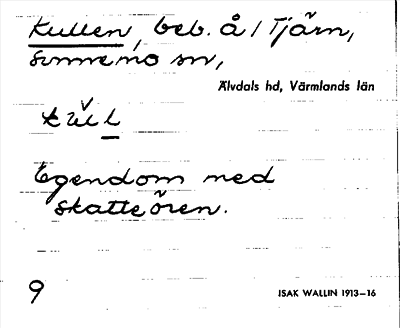 Kullen, beb. å / Tjärn,
Sunnemo sn,
Älvdals hd, Värmlands län
Egendom med
skatteören.
9
ISAK WALLIN 1913–16